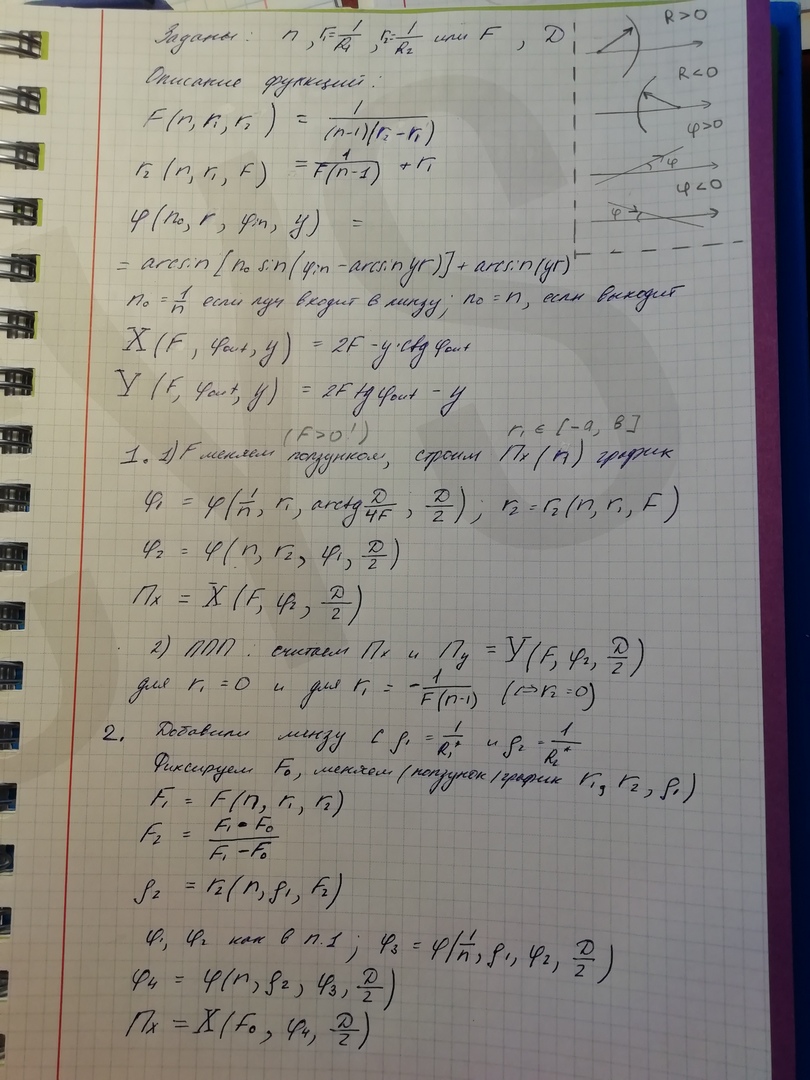 Заданы: n, r₁=1/R₁, r₂=1/R₂ или F, D
R>0
R<0
φ>0
φ
φ<0
φ
Описание функций:
F(n, r₁, r₂) = 1/((n-1)(r₂-r₁))
r₂(n, r₁, F) = 1/(F(n-1)) + r₁
φ(n₀, r, φin, y) =
= arcsin[n₀ sin(φin - arcsin yr)] + arcsin(yr)
n₀ = 1/n если луч входит в линзу; n₀ = n, если выходит
X(F, φout, y) = 2F - y·ctg φout
Y(F, φout, y) = 2F tg φout - y
(F>0!) r₁ ∈ [-a, b]
1. 1) F меняем ползунком, строим Пx(r₁) график
φ₁ = φ(1/n, r₁, arctg D/4F, D/2); r₂ = r₂(n, r₁, F)
φ₂ = φ(n, r₂, φ₁, D/2)
Пx = X(F, φ₂, D/2)
2) ППП: считаем Пx и Пy = Y(F, φ₂, D/2)
для r₁ = 0 и для r₁ = -1/(F(n-1)) (⇔ r₂ = 0)
2. Добавили линзу с ρ₁ = 1/R₁* и ρ₂ = 1/R₂*
Фиксируем F₀, меняем (ползунок/график r₁, r₂, ρ₁)
F₁ = F(n, r₁, r₂)
F₂ = F₁·F₀/(F₁-F₀)
ρ₂ = r₂(n, ρ₁, F₂)
φ₁, φ₂ как в п.1; φ₃ = φ(1/n, ρ₁, φ₂, D/2)
φ₄ = φ(n, ρ₂, φ₃, D/2)
Пx = X(F₀, φ₄, D/2)